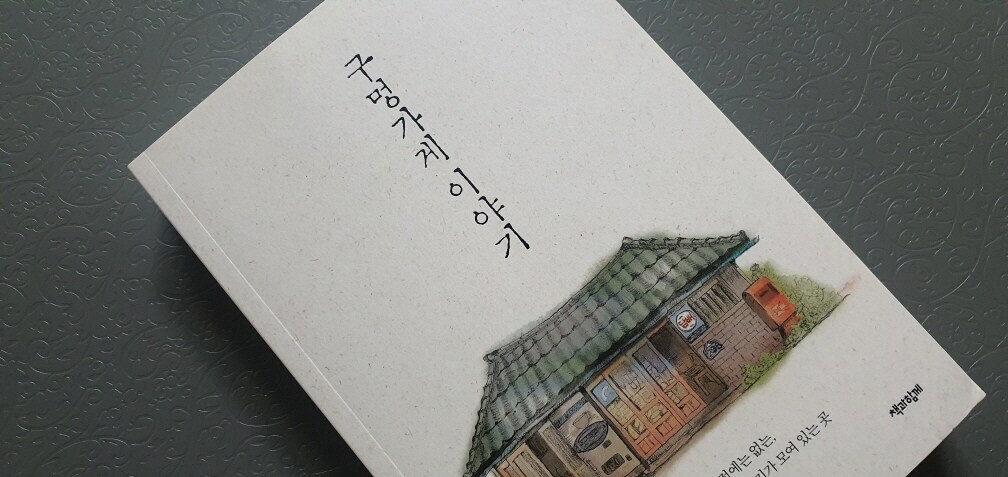 구멍가게 이야기
담배
없는,
모여 있는 곳
책과함께